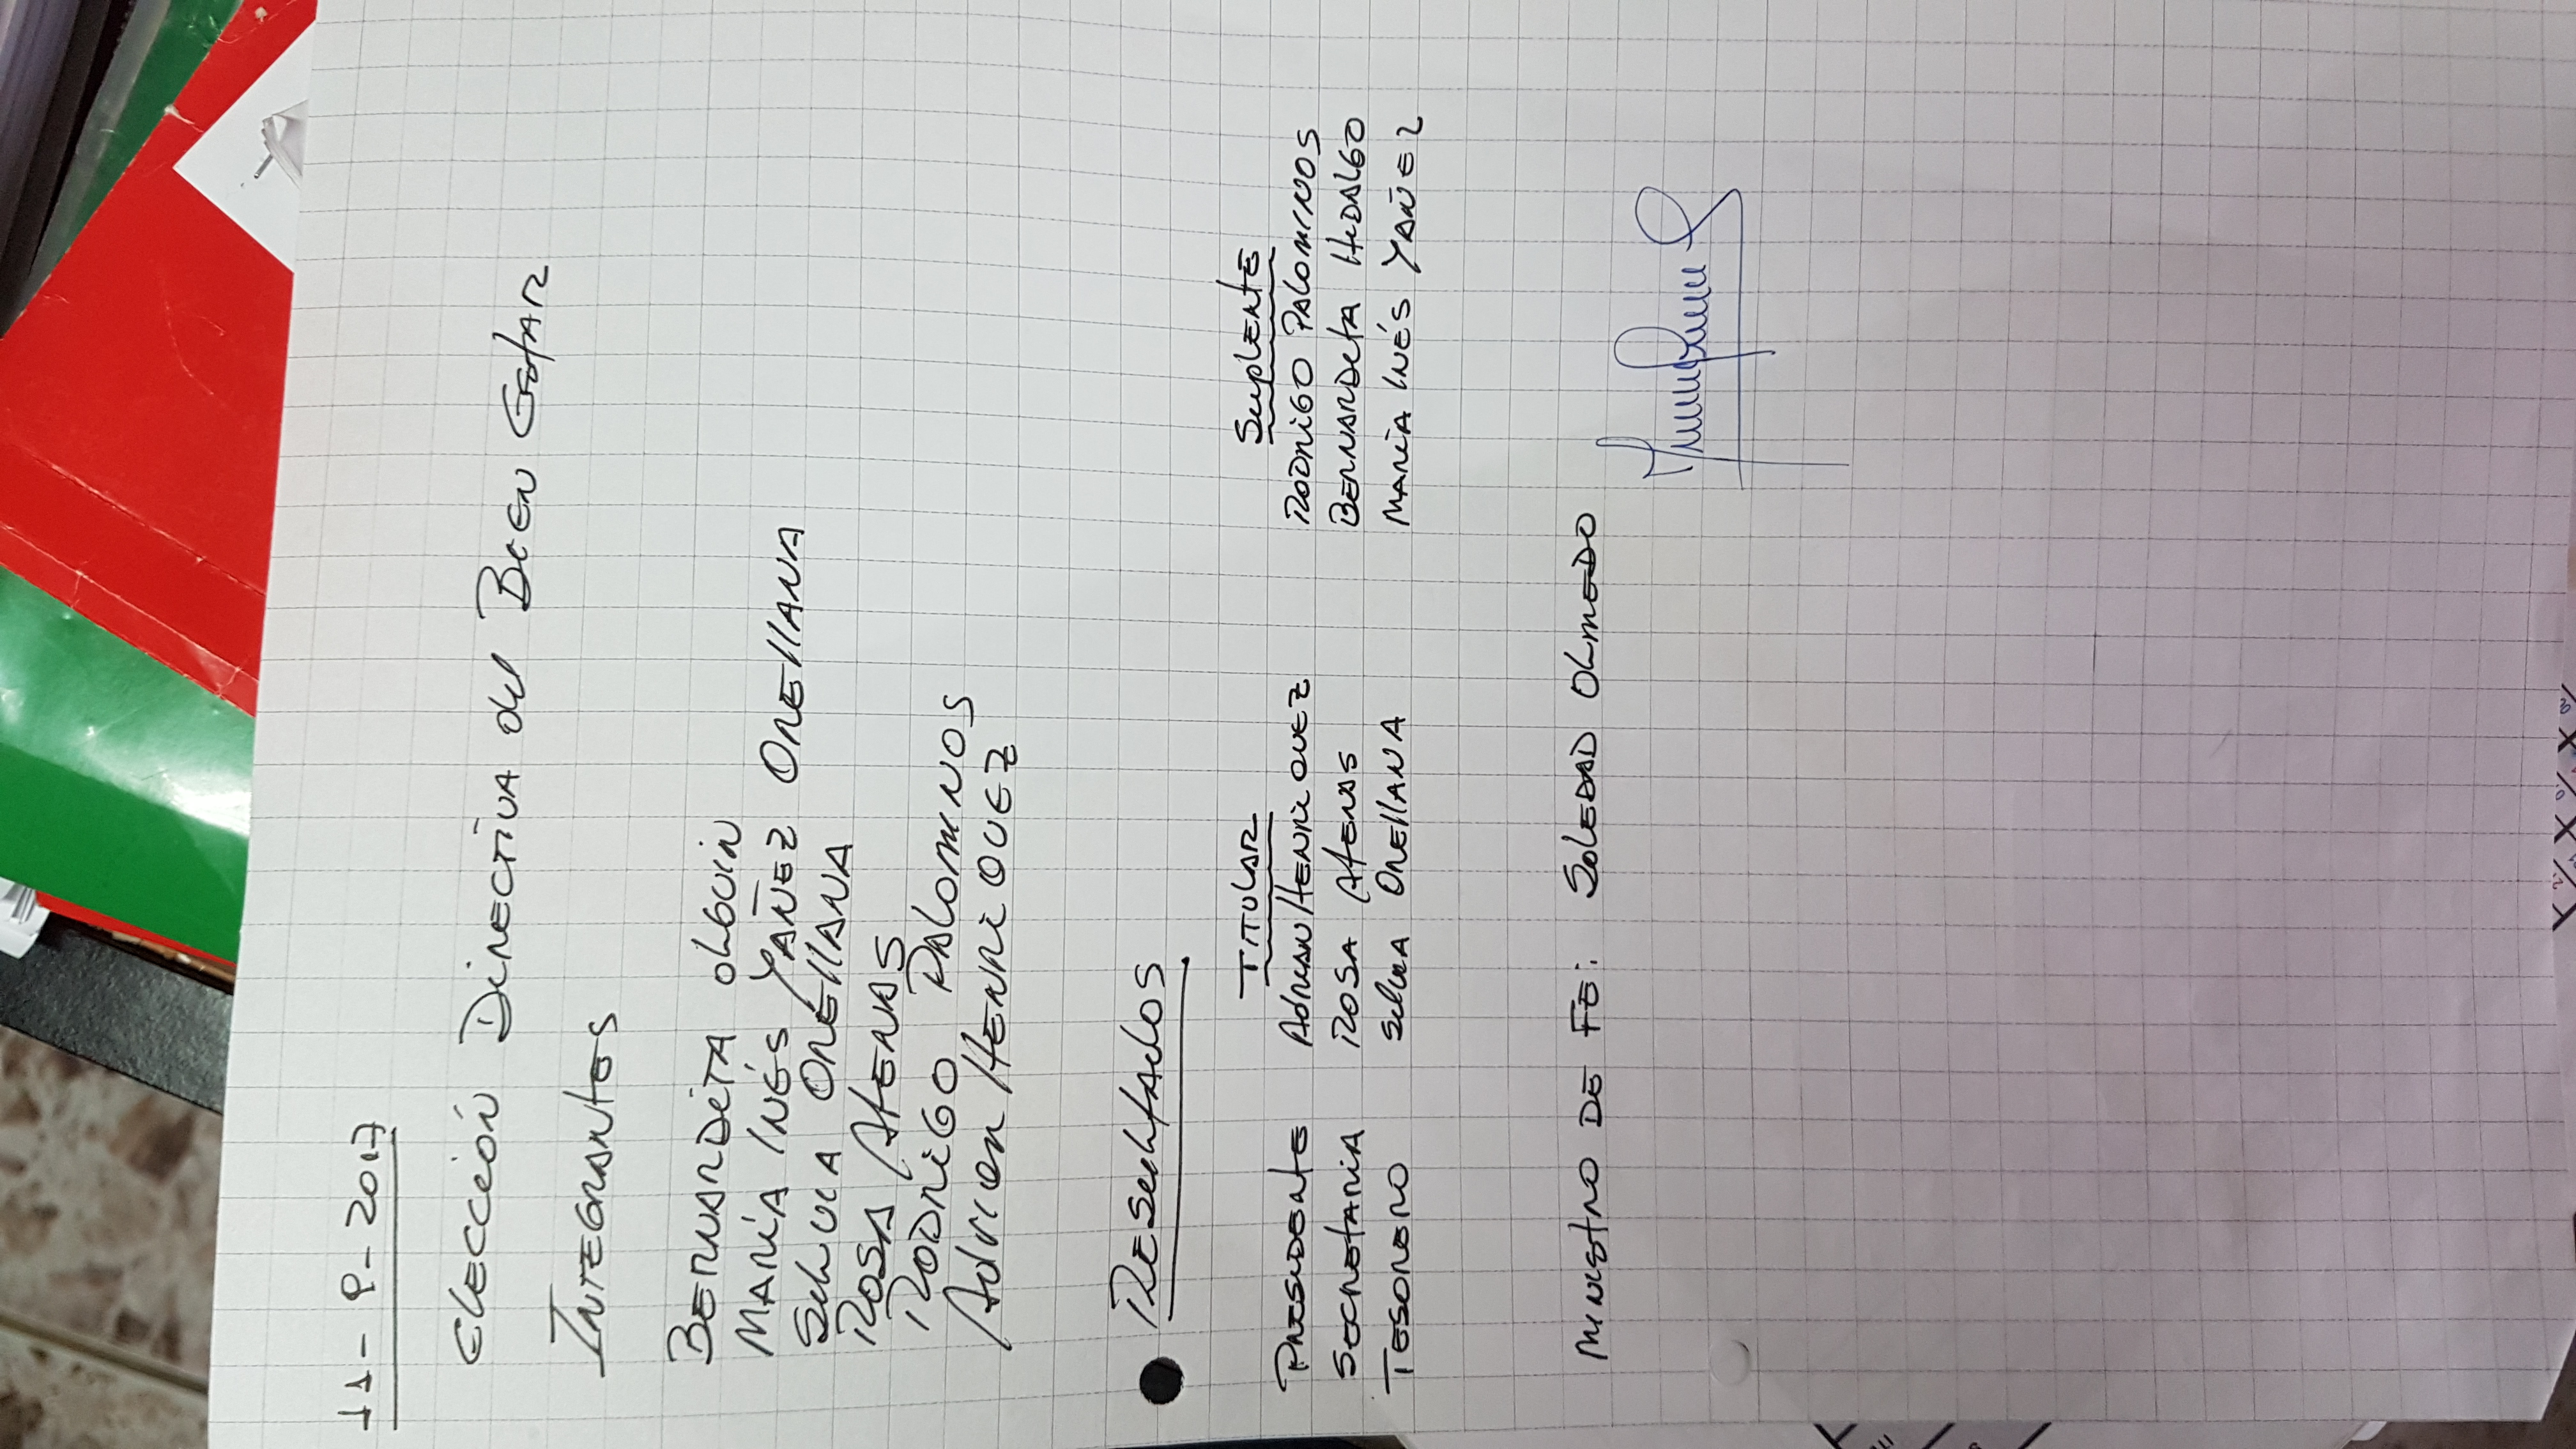 11-9-2017
Elección Directiva del Bien Estar
Integrantes
Bernardita Olguin
María Inés Yañez Orellana
Silvia Orellana
Rosa Atenas
Rodrigo Palominos
Adrian Henriquez
Resultados
Titular Suplente
Presidente Adrian Henriquez Rodrigo Palominos
Secretaria Rosa Atenas Bernardeta Hidalgo
Tesorero Silvia Orellana María Inés Yañez
Ministro de Fe: Soledad Olmedo